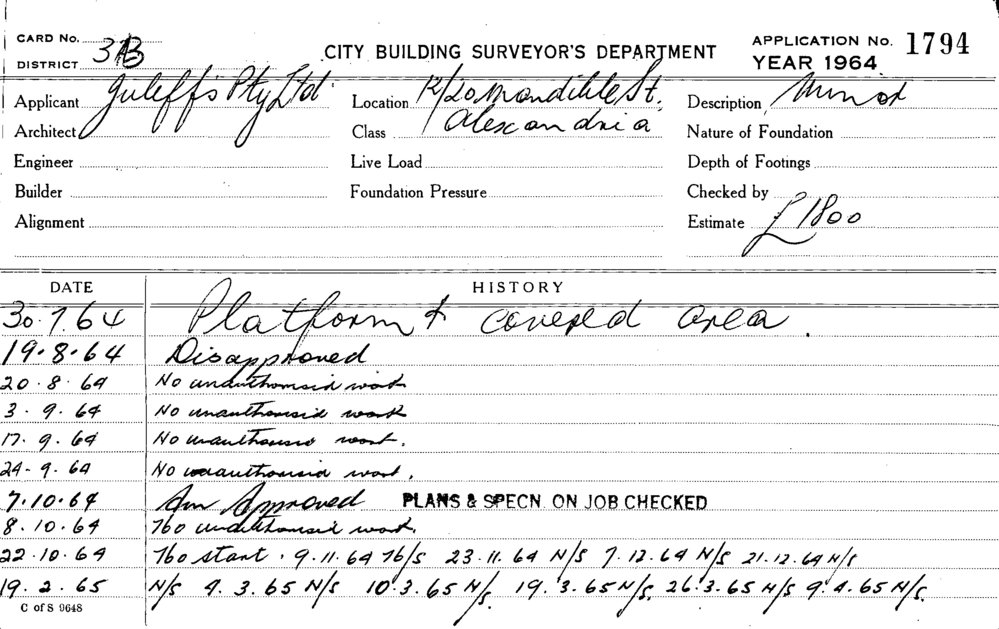 CARD No. 3AB
DISTRICT
CITY BUILDING SURVEYOR'S DEPARTMENT
APPLICATION No. 1794
YEAR 1964
Applicant Juleff's Pty Ltd
Location 12/20 Mandible St.
Alexandria
Description Minor
Architect
Class
Nature of Foundation
Engineer
Live Load
Depth of Footings
Builder
Foundation Pressure
Checked by
Alignment
Estimate £1800
DATE HISTORY
30.7.64 Platform & covered area.
19.8.64 Disapproved
20.8.64 No unauthorised work
3.9.64 No unauthorised work
17.9.64 No unauthorised work.
24-9.64 No unauthorised work.
7.10.64 Approved PLANS & SPECN. ON JOB CHECKED
8.10.64 No unauthorised work.
22.10.64 No start. 9.11.64 N/S 23.11.64 N/S 7.12.64 N/S 21.12.64 N/S
19.2.65 N/S 4.3.65 N/S 10.3.65 N/S. 19.3.65 N/S. 26.3.65 N/S 9.4.65 N/S.
C of S 9648